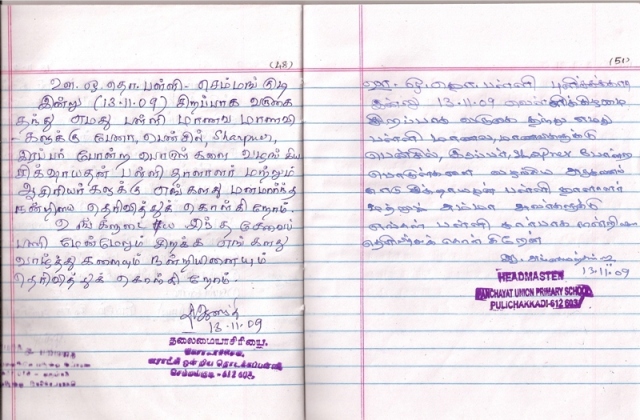 (48)
ஊ.ஓ.தொ.பள்ளி - செம்மங்குடி
இன்று (13.11.09) சிறப்பாக வருகை
தந்து எமது பள்ளி மாணவ மாணவி
களுக்கு பேனா, பென்சில், Sharpner,
இரப்பர் போன்ற பொருள்களை வழங்கிய
பள்ளி தாளாளர் மற்றும்
ஆசிரியர்களுக்கு எங்களது மனமார்ந்த
நன்றியை தெரிவித்துக் கொள்கிறோம்.
இந்த சேவை
பணி மேன்மேலும் சிறக்க எங்களது
வாழ்த்துகளையும் நன்றியினையும்
தெரிவித்துக் கொள்கிறோம்.
13.11.09
தலைமையாசிரியை,
ஊராட்சி ஒன்றிய தொடக்கப்பள்ளி
செம்மங்குடி - 612 603
(51)
ஊ.ஒ.தொ. பள்ளி
இன்று 13.11.09
சிறப்பாக வருகை தந்து எமது
பள்ளி மாணவ, மாணவிகளுக்கு
பென்சில், இரப்பர், Sharpner போன்ற
பொருள்களை வழங்கிய
பள்ளி தாளாளர்
அம்மா அவர்களுக்கு
எங்கள் பள்ளி சார்பாக நன்றியை
தெரிவித்துக் கொள்கிறேன்
13.11.09
HEADMASTER
PANCHAYAT UNION PRIMARY SCHOOL
PULICHAKKADI-612 603